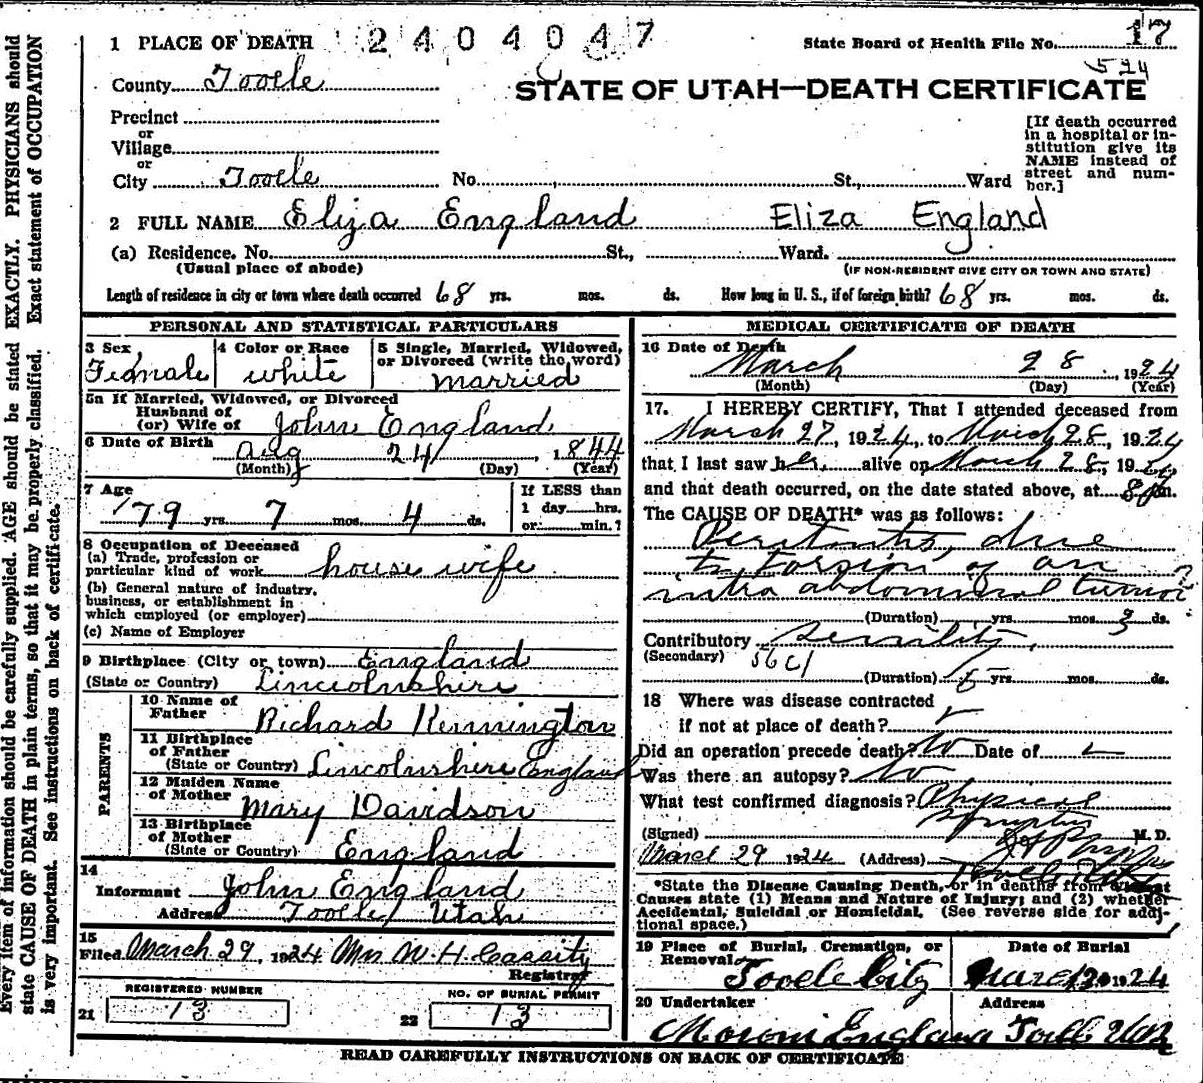 Every item of information should be carefully supplied. AGE should be stated EXACTLY. PHYSICIANS should
state CAUSE OF DEATH in plain terms, so that it may be properly classified. Exact statement of OCCUPATION
is very important. See instructions on back of certificate.
1 PLACE OF DEATH 2404047 State Board of Health File No. 17
524
County Tooele STATE OF UTAH—DEATH CERTIFICATE
Precinct
or
Village
or
City Tooele No. St., Ward
[If death occurred
in a hospital or in-
stitution give its
NAME instead of
street and num-
ber.]
2 FULL NAME Eliza England Eliza England
(a) Residence. No. St., Ward.
(Usual place of abode) (IF NON-RESIDENT GIVE CITY OR TOWN AND STATE)
Length of residence in city or town where death occurred 68 yrs. mos. ds. How long in U. S., if of foreign birth? 68 yrs. mos. ds.
PERSONAL AND STATISTICAL PARTICULARS
3 Sex
Female
4 Color or Race
white
5 Single, Married, Widowed,
or Divorced (write the word)
married
5a If Married, Widowed, or Divorced
Husband of
(or) Wife of John England
6 Date of Birth Aug 24, 1844
(Month) (Day) (Year)
7 Age
79 yrs. 7 mos. 4 ds.
If LESS than
1 day hrs.
or min.?
8 Occupation of Deceased
(a) Trade, profession or
particular kind of work house wife
(b) General nature of industry,
business, or establishment in
which employed (or employer)
(c) Name of Employer
9 Birthplace (City or town) England
(State or Country) Lincolnshire
PARENTS
10 Name of
Father Richard Kennington
11 Birthplace
of Father
(State or Country) Lincolnshire England
12 Maiden Name
of Mother Mary Davidson
13 Birthplace
of Mother
(State or Country) England
14
Informant John England
Address Tooele, Utah
15
Filed March 29, 1924 Mrs W. H. Cassity
Registrar
REGISTERED NUMBER
21 13
NO. OF BURIAL PERMIT
22 13
MEDICAL CERTIFICATE OF DEATH
16 Date of Death
March 28, 1924
(Month) (Day) (Year)
17. I HEREBY CERTIFY, That I attended deceased from
March 27, 1924, to March 28, 1924
that I last saw her alive on March 28, 1924
and that death occurred, on the date stated above, at 8 pm.
The CAUSE OF DEATH* was as follows:
Peritonitis, due
to torsion of an
intra abdominal tumor
(Duration) yrs. mos. 3 ds.
Contributory Senility,
(Secondary) (Duration) yrs. mos. ds.
18 Where was disease contracted
if not at place of death?
Did an operation precede death? No Date of
Was there an autopsy? No
What test confirmed diagnosis? Physical
(Signed) M. D.
March 29 1924 (Address)
*State the Disease Causing Death, or in deaths from Violent
Causes state (1) Means and Nature of Injury; and (2) whether
Accidental, Suicidal or Homicidal. (See reverse side for addi-
tional space.)
19 Place of Burial, Cremation, or
Removal
Tooele City
Date of Burial
1924
20 Undertaker Address
Moroni England Tooele Utah
READ CAREFULLY INSTRUCTIONS ON BACK OF CERTIFICATE